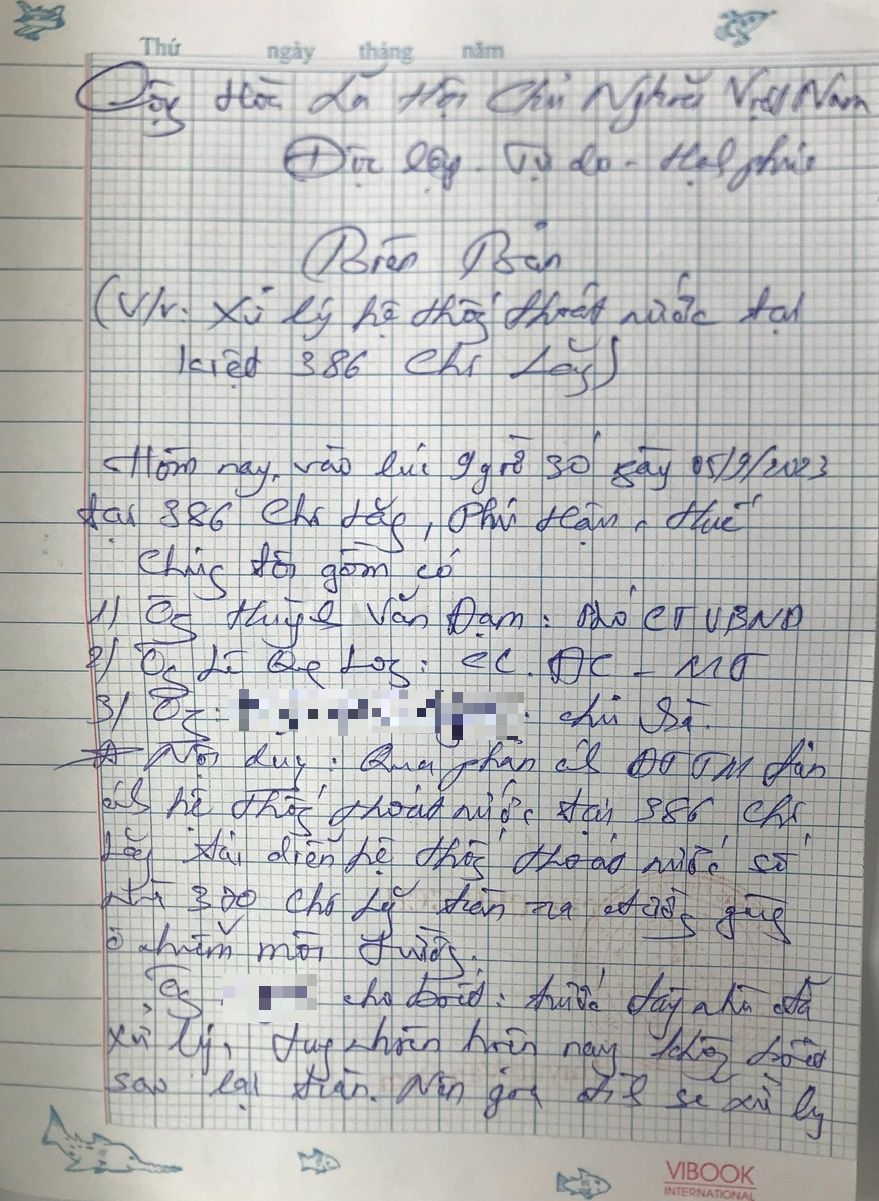 Thứ ngày tháng năm
Cộng Hòa Xã Hội Chủ Nghĩa Việt Nam
Độc lập - Tự do - Hạnh phúc
Biên Bản
(V/v: Xử lý hệ thống thoát nước tại
kiệt 386 Chi Lăng)
Hôm nay, vào lúc 9 giờ 30 ngày 05/9/2023
tại 386 Chi Lăng, Phú Hậu, Huế
Chúng tôi gồm có
1) Ông Huỳnh Văn Đạm: Phó CT UBND
2) Ông Lê Quang Long: CC. ĐC - MT
3) Ông: chủ
Nội dung: Qua phản ánh ĐTTM phản
ánh hệ thống thoát nước tại 386 Chi
Lăng đại diện hệ thống thoát nước số
nhà Chi Lăng tràn ra đường gây
ô nhiễm môi trường.
Ông cho biết: trước đây nhà đã
xử lý, tuy nhiên hiện nay không biết
sao lại tràn. Nên gia đình sẽ xử lý
VIBOOK
INTERNATIONAL